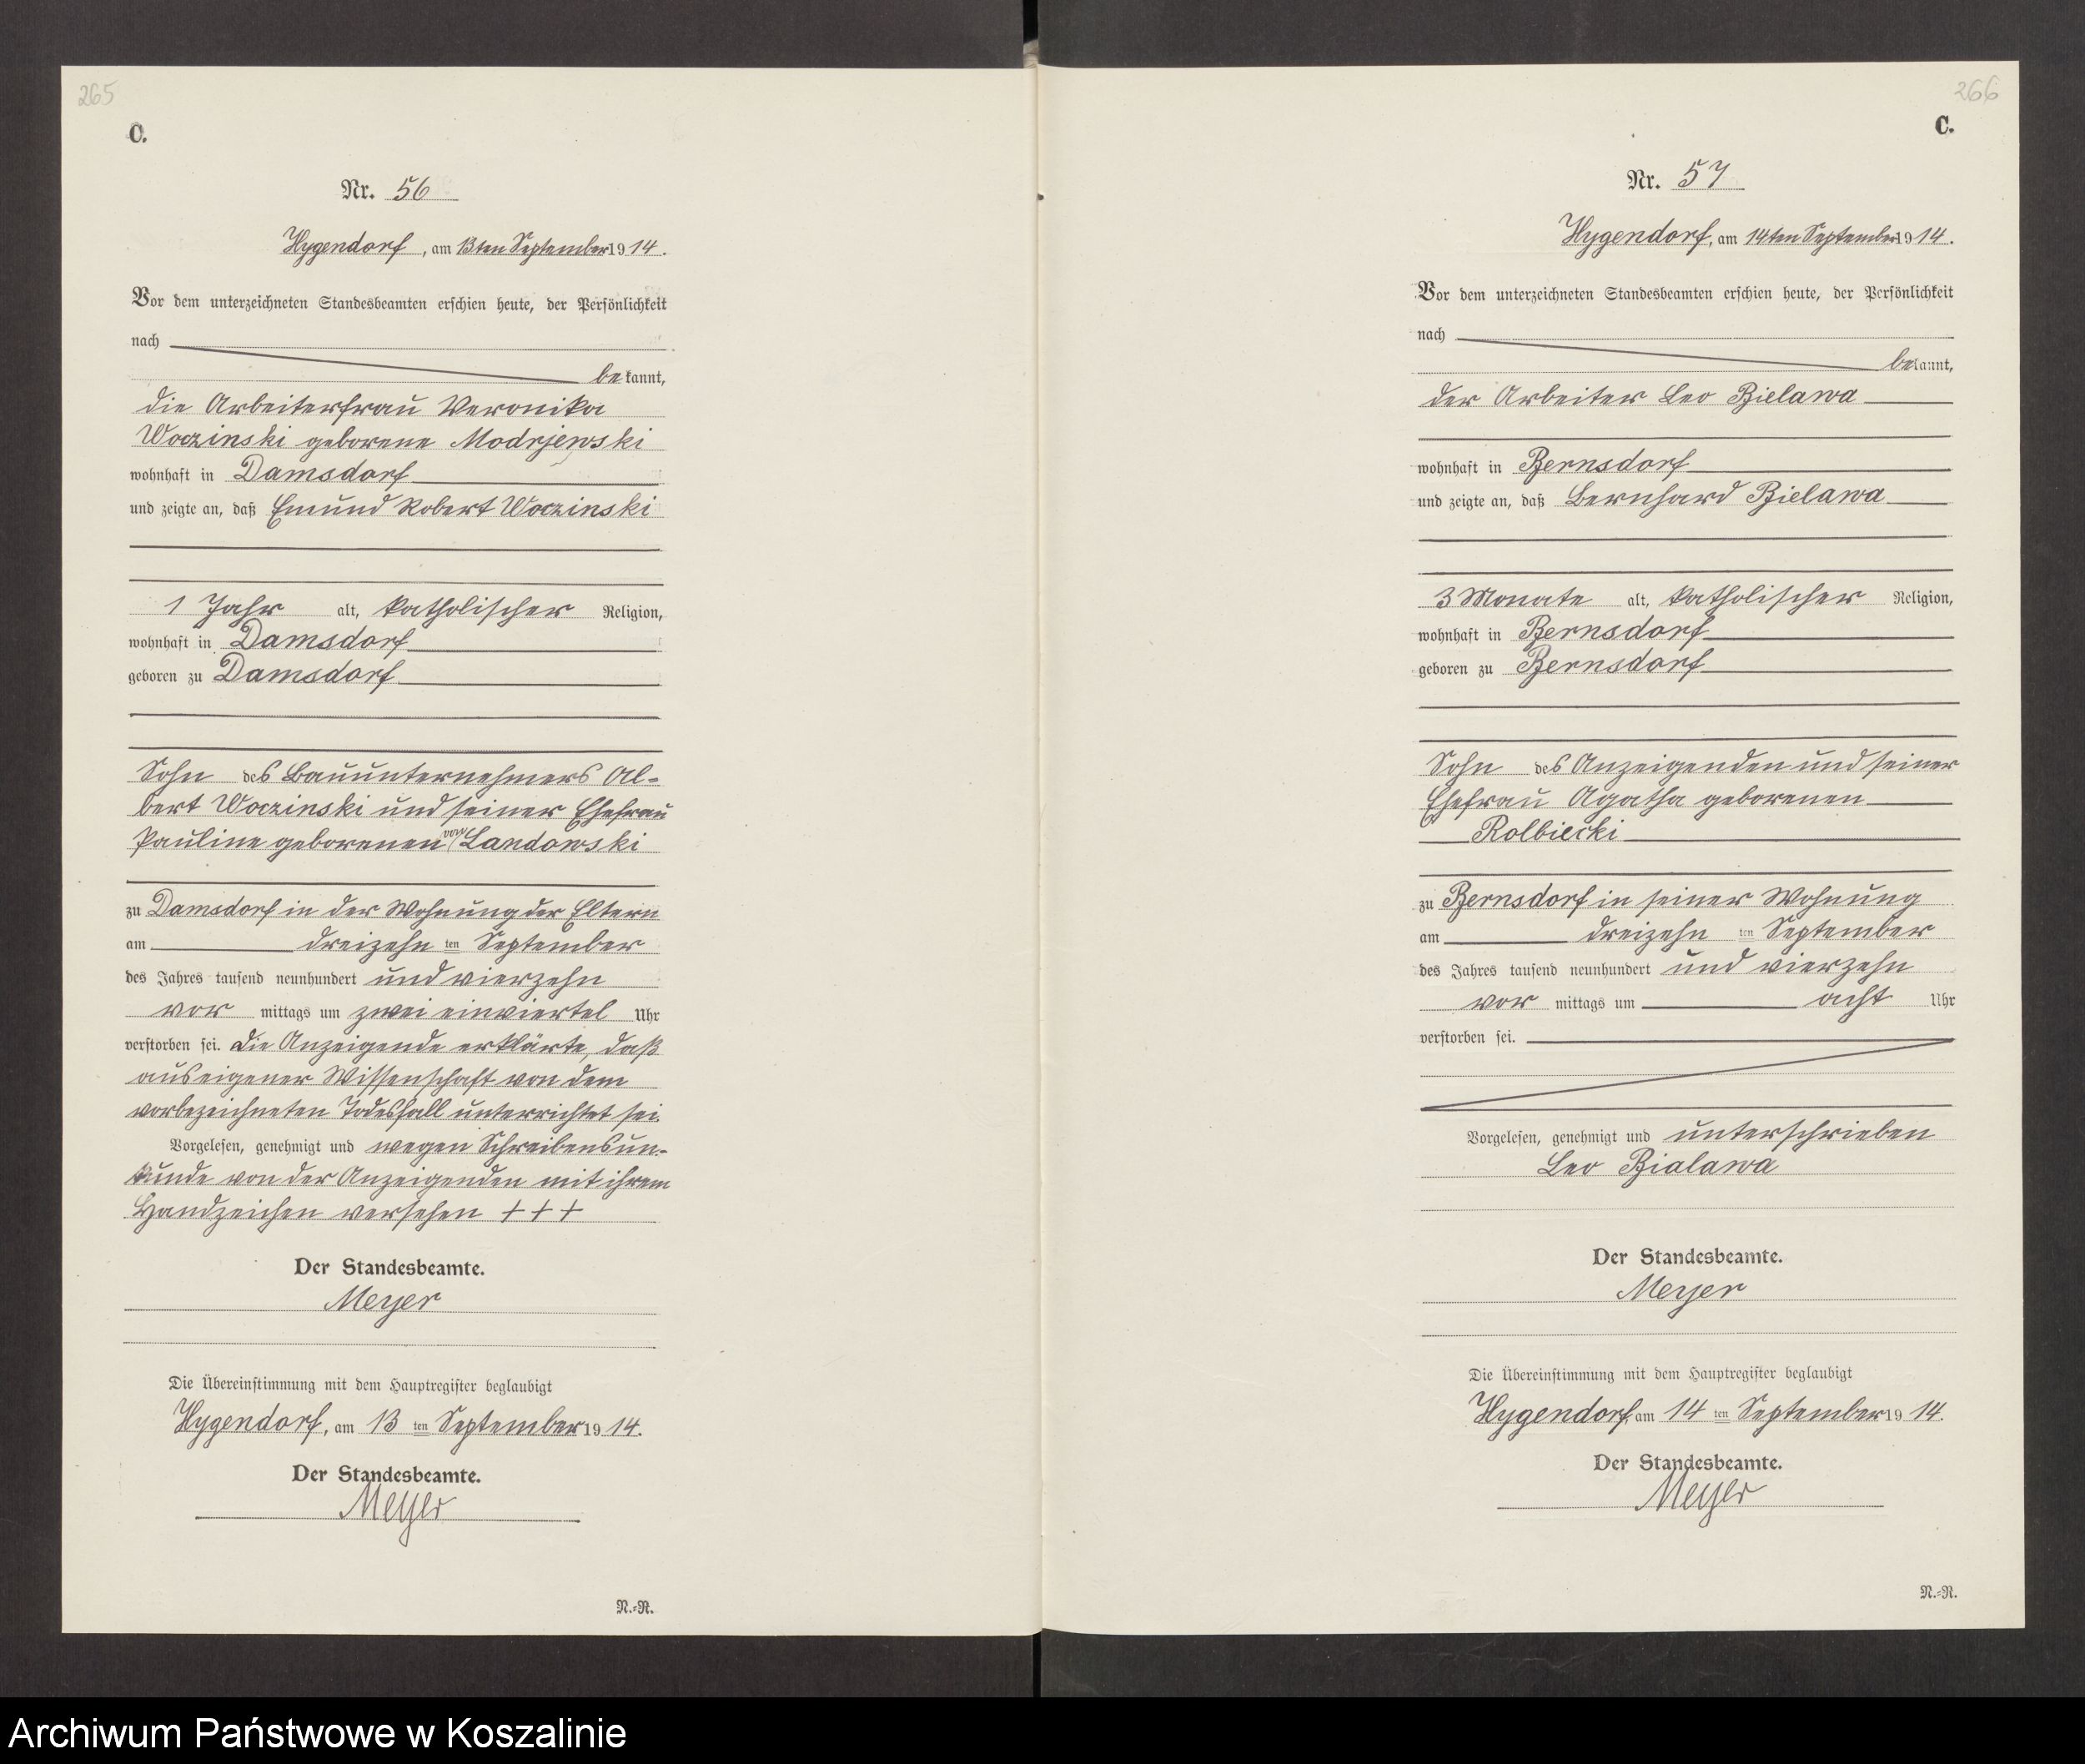 265
C.
Nr. 56
Hygendorf, am 13ten September 1914.
Vor dem unterzeichneten Standesbeamten erschien heute, der Persönlichkeit
nach
bekannt,
die Arbeiterfrau Veronika
Woczinski geborene Modrjewski
wohnhaft in Damsdorf
und zeigte an, daß Emund Robert Woczinski
1 Jahr alt, katholischer Religion,
wohnhaft in Damsdorf
geboren zu Damsdorf
Sohn des Bauunternehmers Al-
bert Woczinski und seiner Ehefrau
Pauline geborenen von Landowski
zu Damsdorf in der Wohnung der Eltern
am dreizehn ten September
des Jahres tausend neunhundert und vierzehn
vor mittags um zwei einviertel Uhr
verstorben sei. Die Anzeigende erklärte, daß
aus eigener Wissenschaft von dem
vorbezeichneten Todesfall unterrichtet sei.
Vorgelesen, genehmigt und wegen Schreibensun-
kunde von der Anzeigenden mit ihrem
Handzeichen versehen + + +
Der Standesbeamte.
Meyer
Die Übereinstimmung mit dem Hauptregister beglaubigt
Hygendorf, am 13 ten September 1914.
Der Standesbeamte.
Meyer
N.=R.
266
C.
Nr. 57
Hygendorf, am 14ten September 1914.
Vor dem unterzeichneten Standesbeamten erschien heute, der Persönlichkeit
nach
bekannt,
der Arbeiter Leo Bielawa
wohnhaft in Bernsdorf
und zeigte an, daß Bernhard Bielawa
3 Monate alt, katholischer Religion,
wohnhaft in Bernsdorf
geboren zu Bernsdorf
Sohn des Anzeigenden und seiner
Ehefrau Agatha geborenen
Rolbiecki
zu Bernsdorf in seiner Wohnung
am dreizehn ten September
des Jahres tausend neunhundert und vierzehn
vor mittags um acht Uhr
verstorben sei.
Vorgelesen, genehmigt und unterschrieben
Leo Bialawa
Der Standesbeamte.
Meyer
Die Übereinstimmung mit dem Hauptregister beglaubigt
Hygendorf, am 14 ten September 1914.
Der Standesbeamte.
Meyer
N.=R.
Archiwum Państwowe w Koszalinie